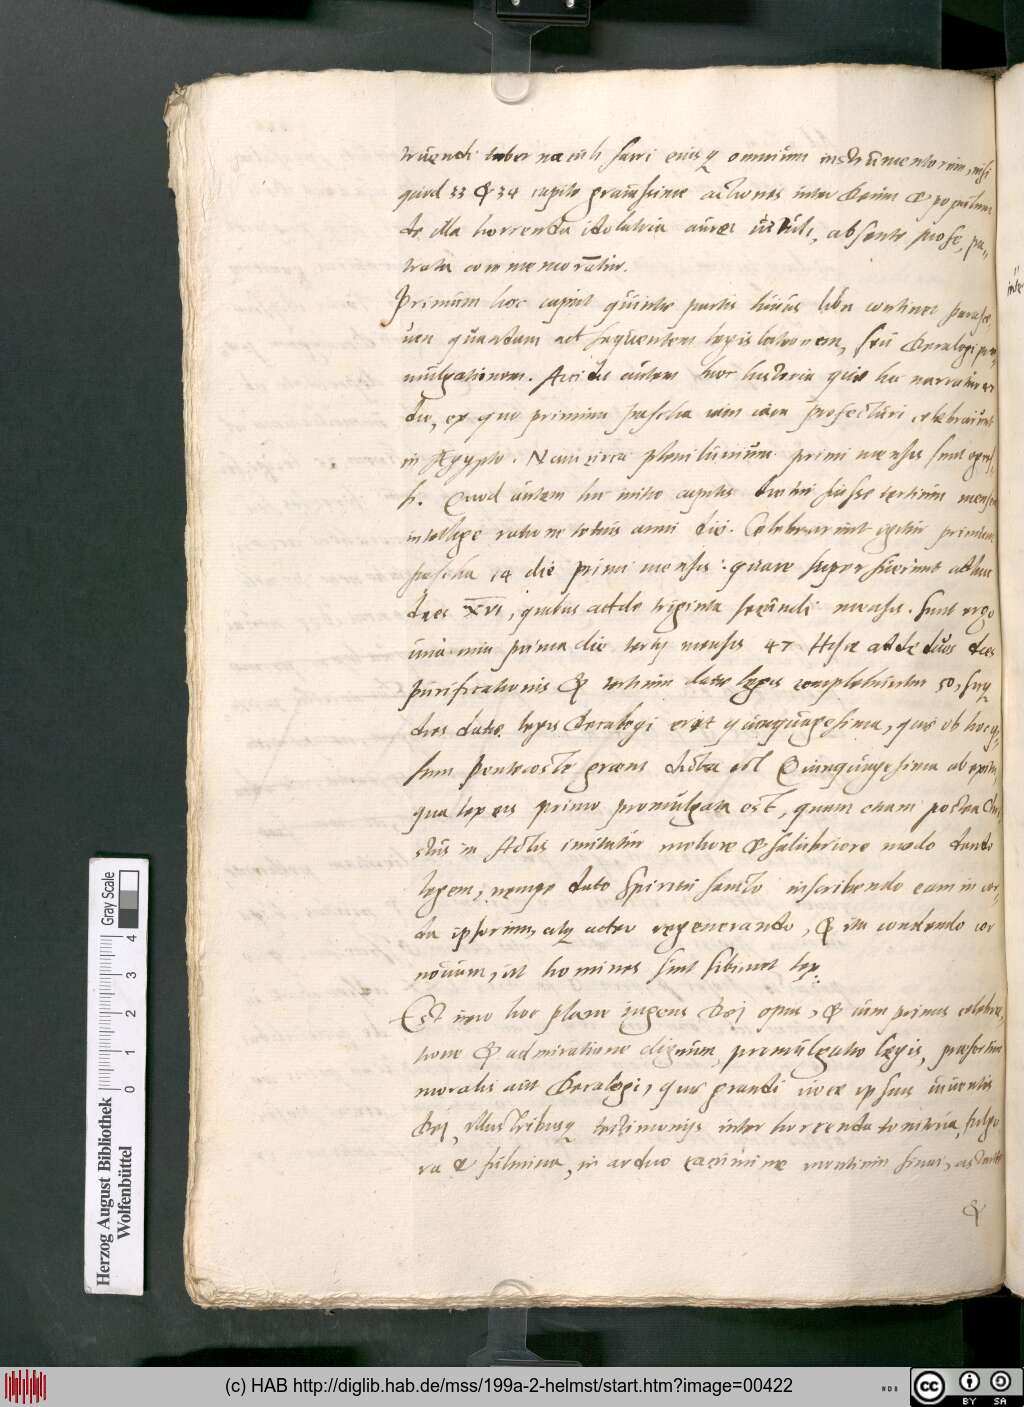 truendi tabernaculi sacri eiusq omnium instrumentorum, nisi
quod 33 & 34 capite gravissime actiones inter Deum & populum
de illa horrenda idolatria aurei vituli, absente Mose, pa„
trata commemorãtur.
Primum hoc caput quintæ partis huius libri continet
quantum ad sequentem legis lationem, seu Decalogi pro„
mulgationem. Accidit autem hæc historia quæ hic narratur
die, ex quo primum pascha cum iam profecturi celebrarunt
in Ægypto. Nam circa plenilunium primi mensis sunt egres„
si. Quod autem hic initio capitis dicitur fuisse tertium mensem
intellige ratione totius anni dici. Celebrarunt igitur primum
pascha 14 die primi mensis: quare superfuerunt adhuc
dies XVI, quibus adde triginta secundi mensis. sunt ergo
una cum prima die tertij mensis 47 His adde duos dies
purificationis & tertium datæ legis complebuntur 50, sicq
dies datæ legis Decalogi erit quinquagesima, quæ ob hoc
sum Pentecoste græcis dicta est Quinquagesima ab
qua lex eis primo promulgata est, quam etiam postea Chri„
stus in Actis imitatur meliore & salubriore modo dando
legem, nempe dato Spiritu sancto inscribendo eam in cor„
da ipsorum, atq adeo regenerando, & ita condendo cor
novum, ut homines sint sibimet lex.
Est vero hoc plane ingens Dei opus, & cum primis celebra„
tione & admiratione dignum, promulgatio legis, præsertim
moralis aut Decalogi, quæ grandi voce ipsius viventis
Dei, illustribusq testimonijs inter horrenda tonitrua, fulgu
ra & fulmina, in arduo cacumine montium Sinai,
&
Gray Scale
4
3
2
1
0
Herzog August Bibliothek
Wolfenbüttel
(c) HAB http://diglib.hab.de/mss/199a-2-helmst/start.htm?image=00422
cc BY SA